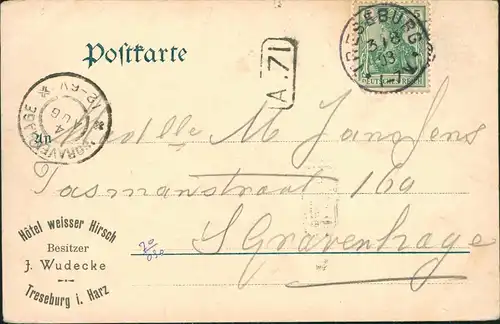 Postkarte
TRESEBURG
3/8
03
DEUTSCHES REICH
A.71
'SGRAVENHAGE
12-6V
4
AUG
An
Mdlle M Janssens
Tasmanstraat 164
S Gravenhage
Hôtel weisser Hirsch
Besitzer
J. Wudecke
Treseburg i. Harz
20/030